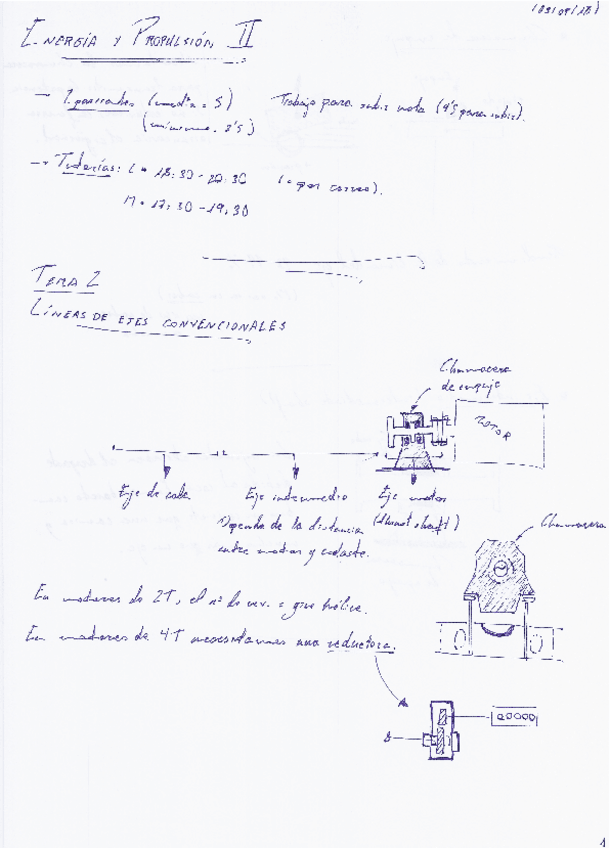 ENERGÍA Y PROPULSIÓN II
- 2 parciales (media = 5) Trabajo para subir nota
(mínimo
→ Tutorías: L • 18:30 - 20:30 (o por correo).
M • 17:30 - 19:30
TEMA 2
LÍNEAS DE EJES CONVENCIONALES
Chumacera
de empuje
MOTOR
Eje de cola
Eje intermedio
Eje motor
Depende de la distancia
(thrust shaft)
entre motor y codaste.
Chumacera
En motores de 2T, el nº de rev. = que hélice.
En motores de 4T necesitamos una reductora.
1